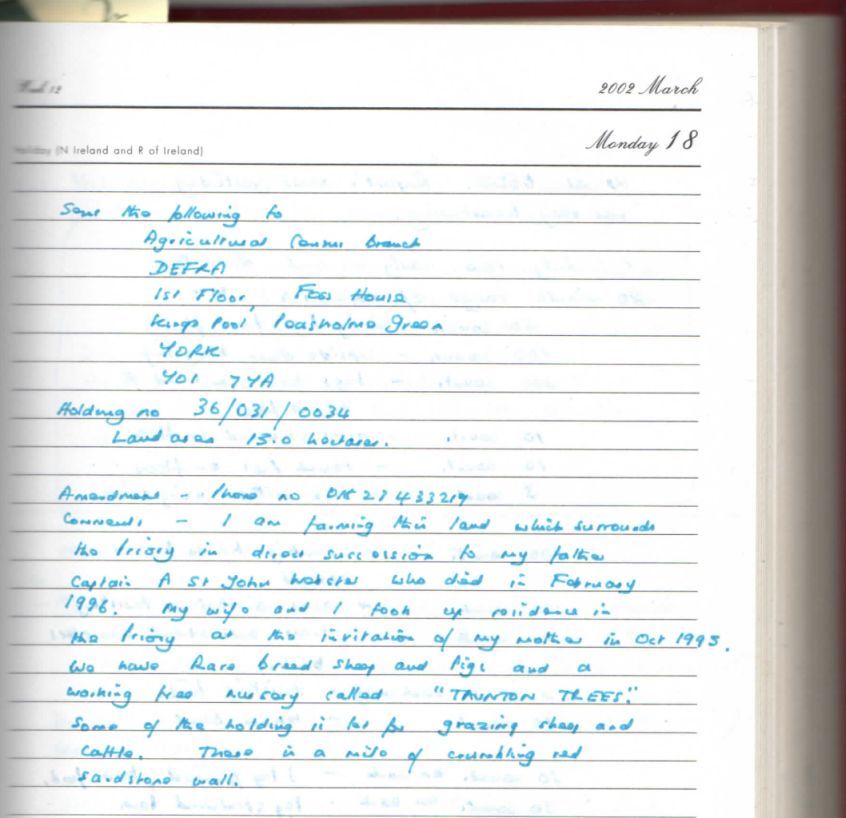 Week 12
2002 March
Monday 18
Holiday (N Ireland and R of Ireland)
Sent the following to
Agricultural Census Branch
DEFRA
1st Floor, Foss House
Kings Pool Peasholme Green
YORK
YO1 7YA
Holding no 36/031/0034
Land area 15.0 hectares.
Amendment - Phone no 01823 433219
Comments - I am farming this land which surrounds
the Priory in direct succession to my father
Captain A St John Webster who died in February
1996. My wife and I took up residence in
the Priory at the invitation of my mother in Oct 1995.
We have Rare breed sheep and Pigs and a
working tree nursery called "TAUNTON TREES."
Some of the holding is let for grazing sheep and
Cattle. There is a mile of crumbling red
sandstone wall.